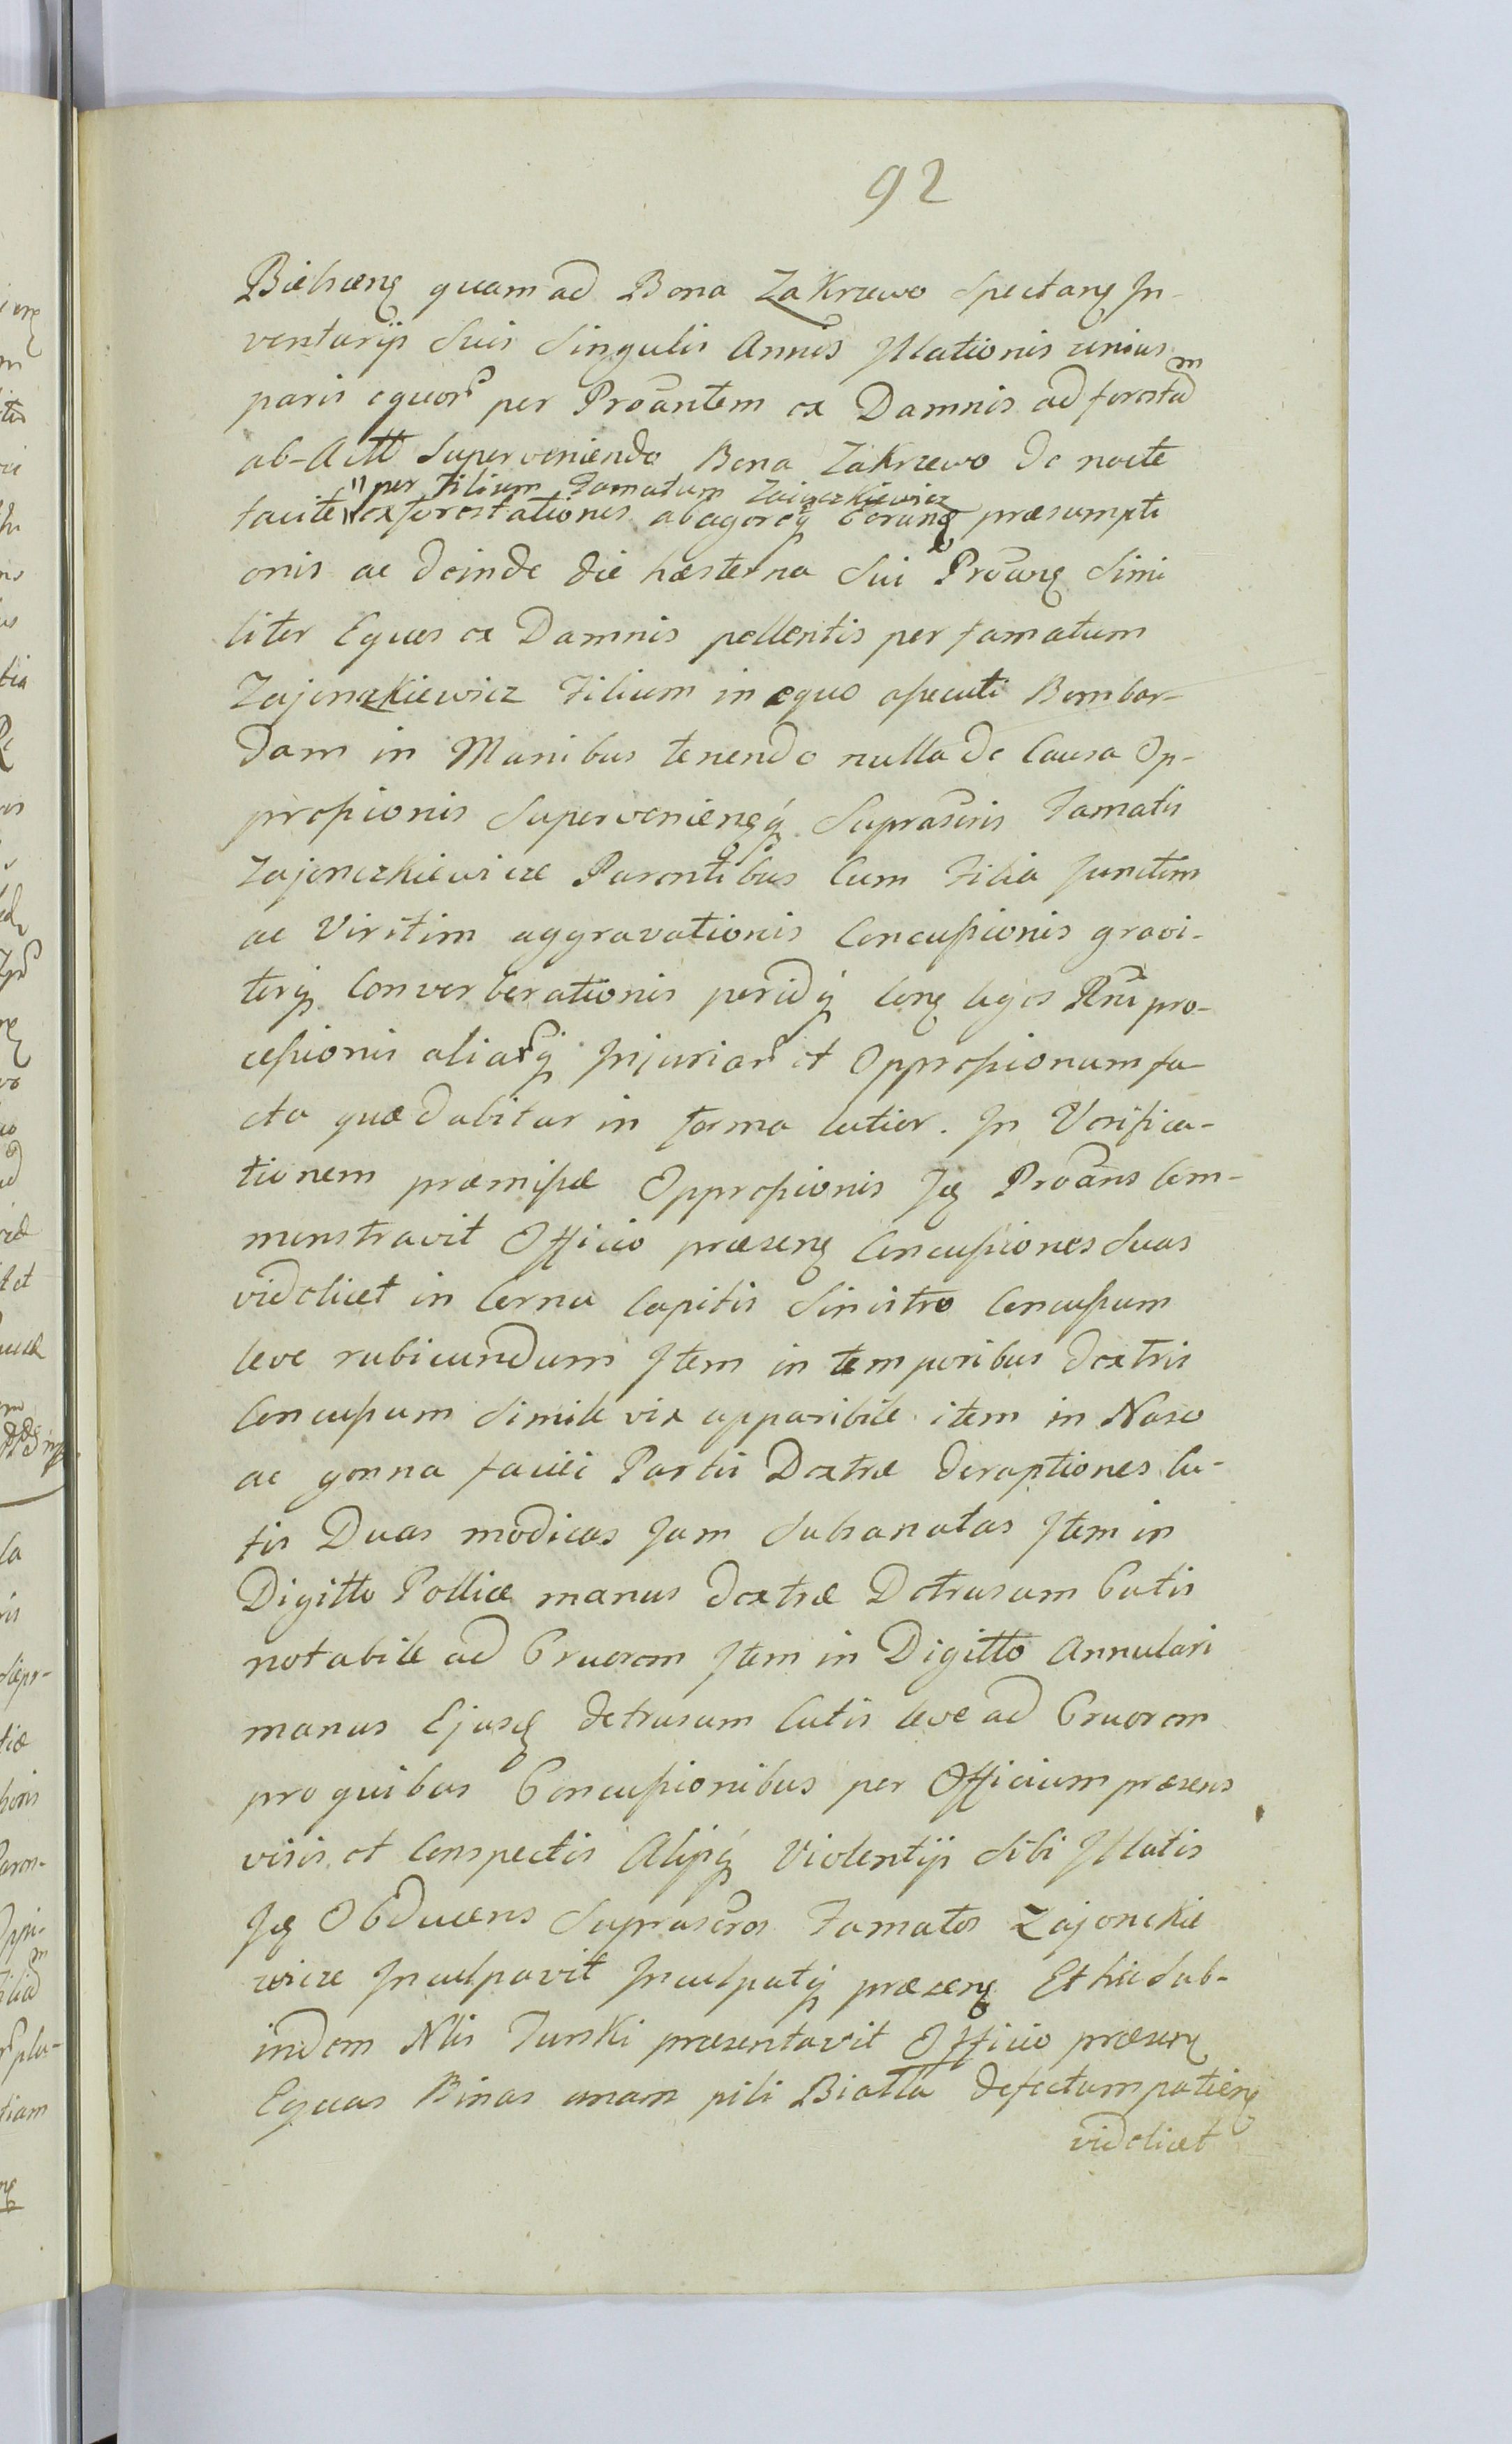 92
Bielscen quam ad Bona Zakrzewo Spectan In-
ventarijs Suis Singulis Annis Illationis unius
paris equor per Proantem ex Damnis ad forestam
ab-Actt Superveniendo Bona Zakrzewo de nocte
"per Filium Famatum Zaiączkiewicz
tacite "exforestationis abagereq Eorund præsumpti
onis ac deinde die hæsterna Sui Proang Simi
liter Eques ex Damnis pellentis per famatum
Zajenczkiewicz Filium in equo assecuti Bombar-
dam in Manibus tenendo nulla de Causa Op-
pressionis Supervenienq Suprascris Famatis
Zajenczkiewicze Parentibus Cum Filia Junctim
ac Viritim aggravationis Concussionis gravi-
terq Converberationis peridq Con leges Rni pro-
cessionis aliarq Injuriar et Oppressionum fa-
cta quæ dabitur in forma latior. In Verifica-
tionem præmissæ Oppressionis Id Proans Com-
monstravit Officio præsen Concussiones Suas
videlicet in Cornu Capitis Sinistro Concussum
leve rubicundum Item in temporibus dextris
Concussum Simile vix apparibile item in Naso
ac genna faciei Partis Dextræ deraptiones Cu-
tis Duas modicas Jam Subsanatas Item in
Digitto Pollice manus dextræ Detrusum Cutis
notabile ad Cruorem Item in Digitto Annulari
manus Ejusd detrusum Cutis leve ad Cruorem
pro quibus Concussionibus per Officium præsens
visis et Conspectis Alijsq Violentijs Sibi Illatis
Id Obducens Suprascros Famatos Zajonckie
wicze Inculpavit Inculpatq præsen Et hic Sub-
indem Nlis Turski præsentavit Officio præsen
Equas Binas unam pili Biatta defectum patien
videlicet